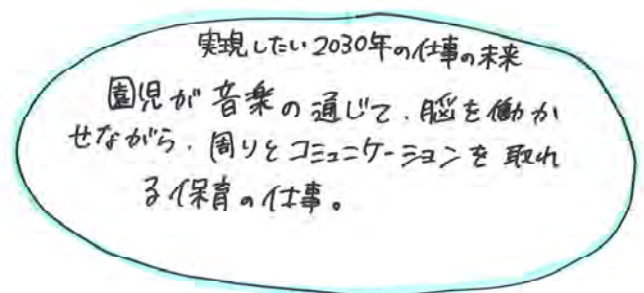 実現したい2030年の仕事の未来
園児が音楽の通じて、脳を働か
せながら、周りとコミュニケーションを取れ
る保育の仕事。